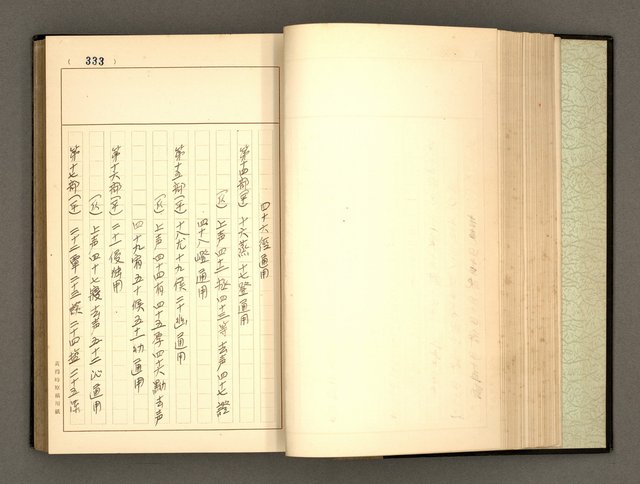 ( 333 )
四十六徑通用
第十四部(平) 十六蒸 十七登通用
(仄) 上声四十二拯四十三等去声四十七證
四十八嶝通用
第十五部(平) 十八尤十九侯二十幽通用
(仄) 上声四十四有四十五厚四十六黝去声
四十九宥五十候五十一幼通用
第十六部(平) 二十一侵獨用
(仄) 上声四十七寢去声五十二沁通用
第十七部(平) 二十二覃二十三談二十四鹽二十五添
黃得時原稿用紙